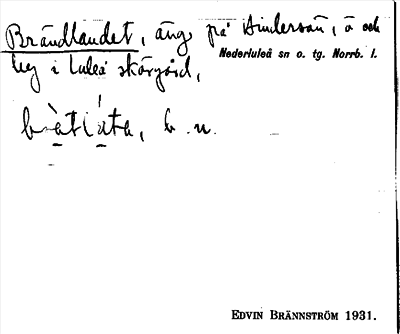 Brändlandet, äng på Hindersön, ö och
Nederluleå sn o. tg. Norrb. l.
by i Luleå skärgård,
b n.
EDVIN BRÄNNSTRÖM 1931.